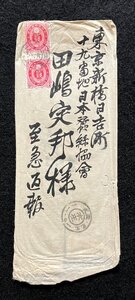 東京新橋日吉町
十九番地日本蚕絲協會
田嶋定邦様
至急迫報